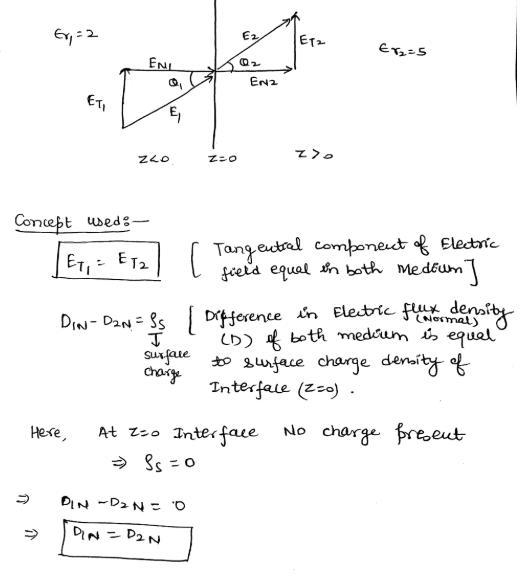 Er₁ = 2
E2
ET2
Er2=5
EN1
θ2
θ1
EN2
ET1
E1
Z<0 Z=0 Z>0
Concept used:—
ET1 = ET2 [ Tangentral component of Electric
field equal in both Medium ]
D1N - D2N = ρs [ Difference in Electric flux density
(Normal)
↓ (D) of both medium is equal
surface to surface charge density of
charge Interface (Z=0) .
Here, At Z=0 Interface No charge present
⇒ ρs = 0
⇒ D1N - D2N = 0
⇒ D1N = D2N